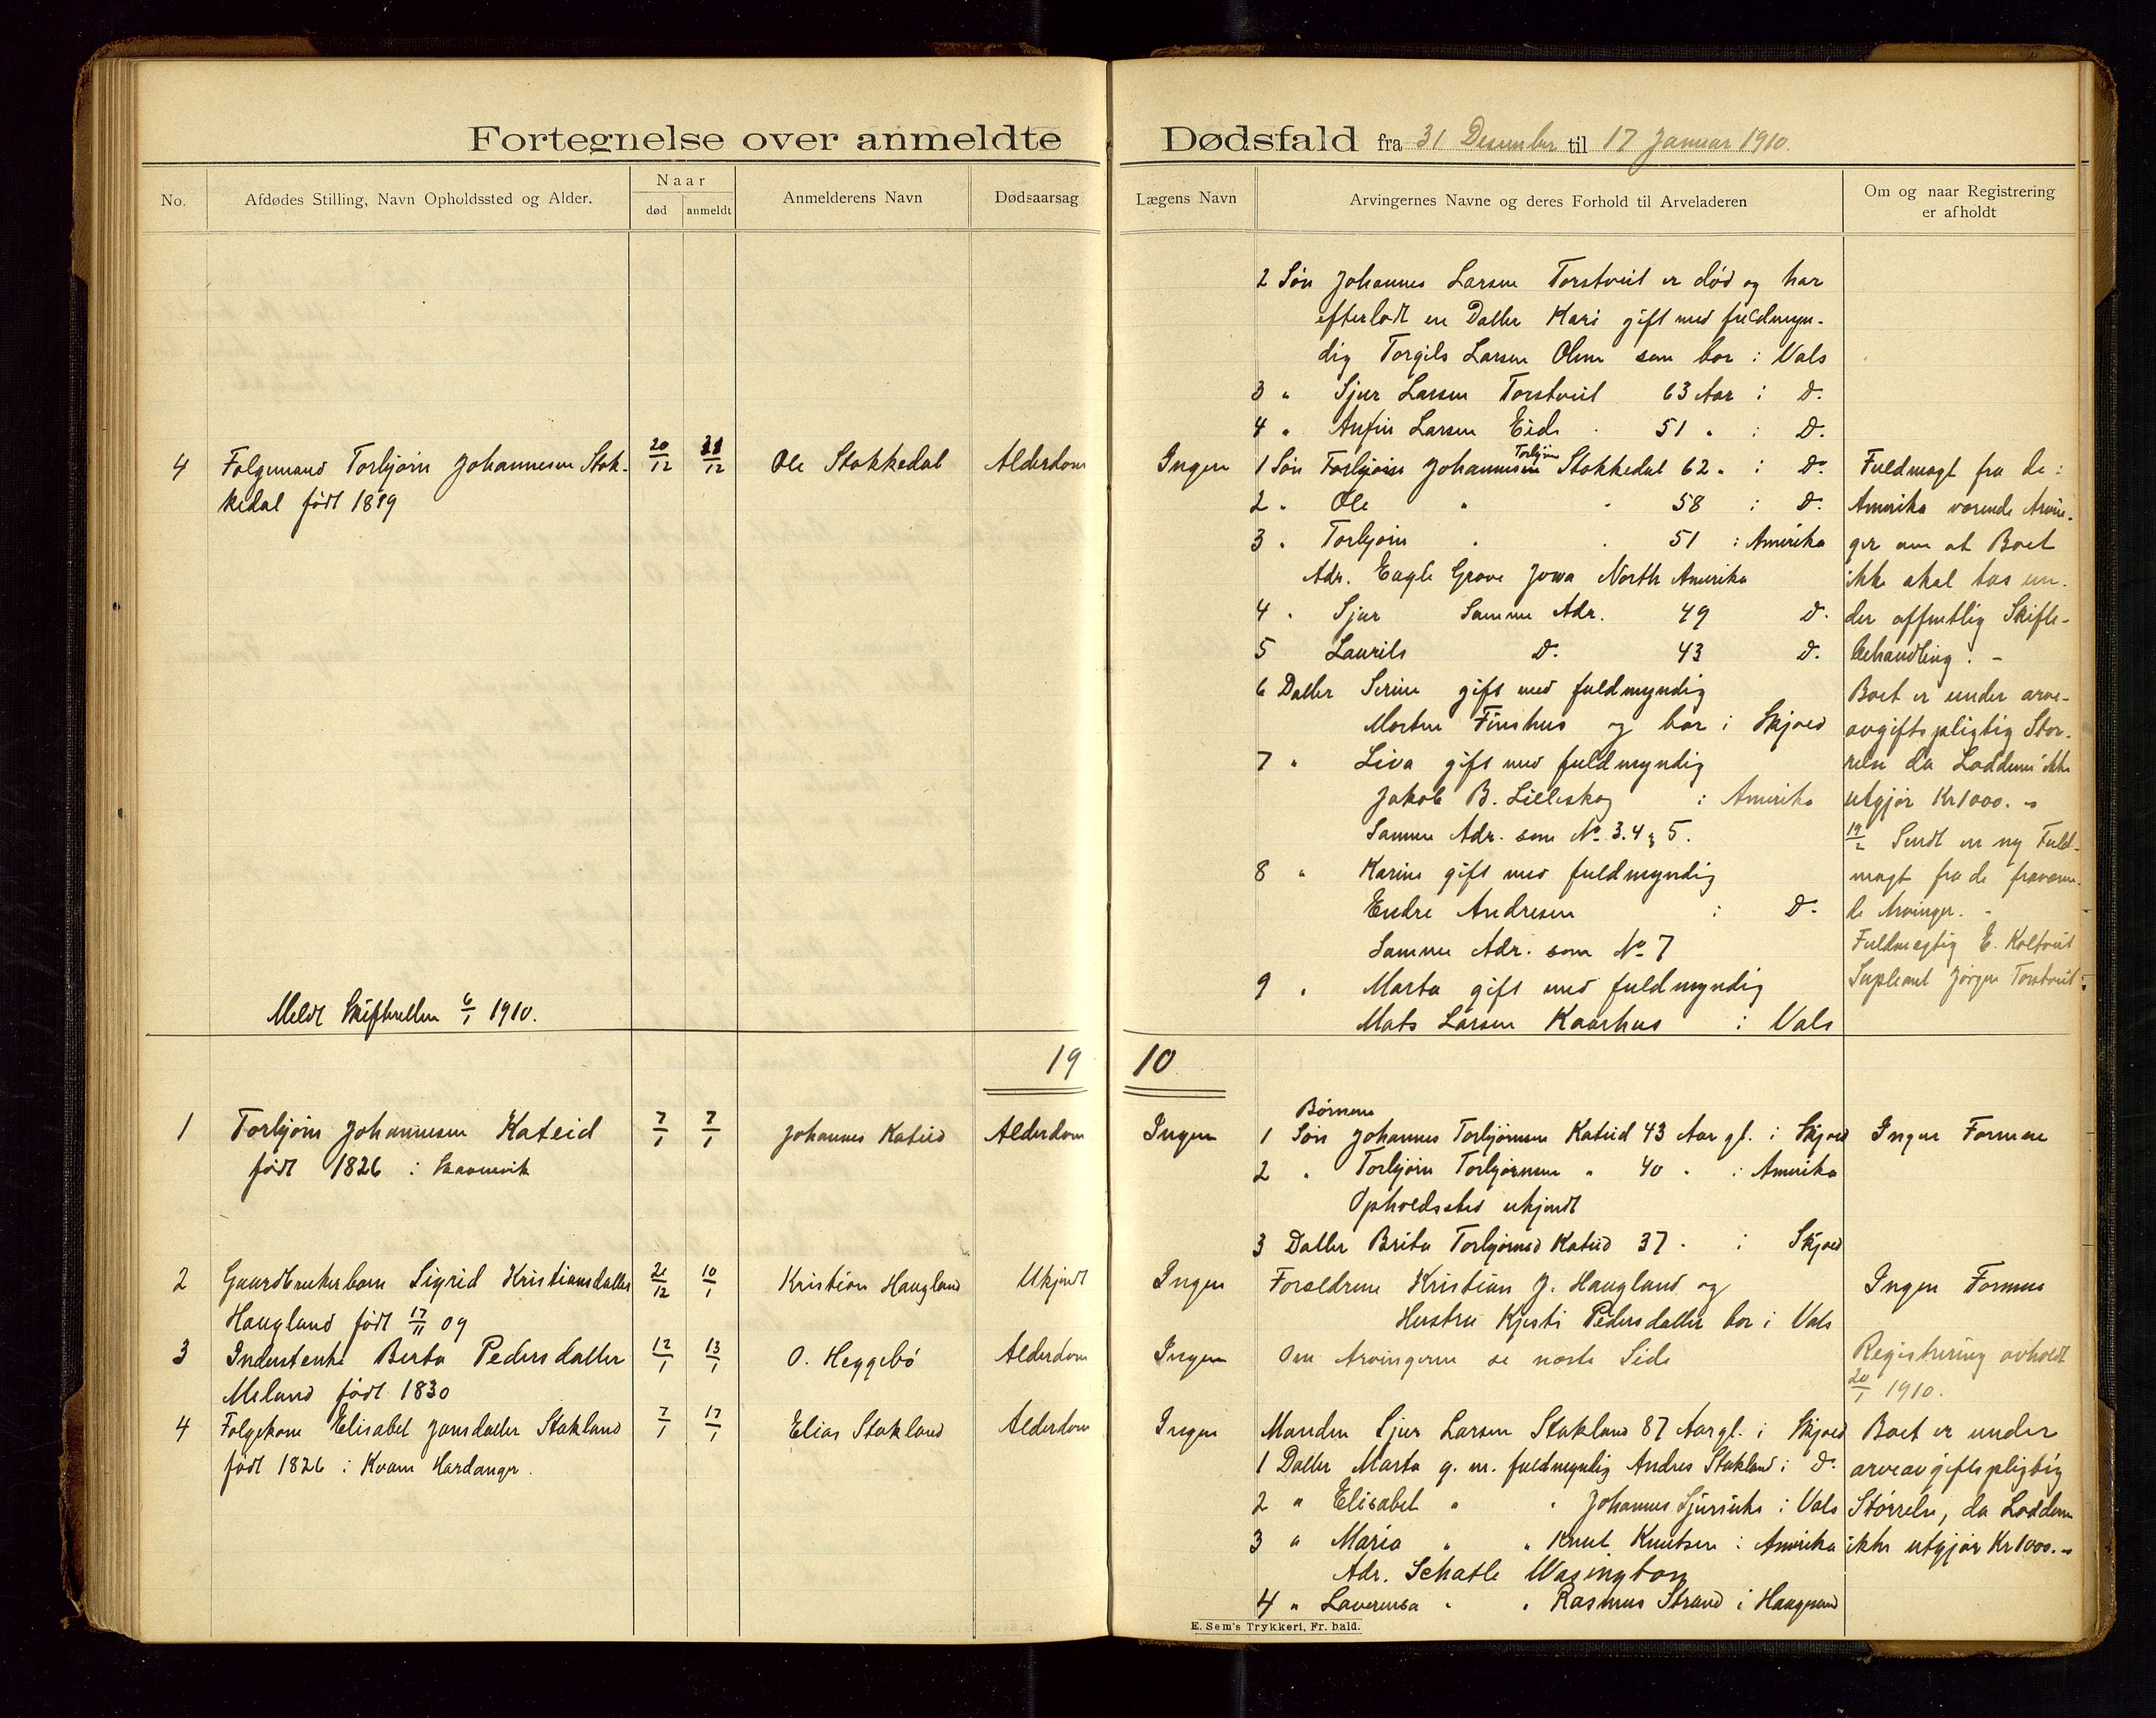 Fortegnelse over anmeldte Dødsfald fra 31 Desember til 17 Januar 1910.
No. Afdødes Stilling, Navn Opholdssted og Alder. Naar død anmeldt Anmelderens Navn Dødsaarsag
Lægens Navn Arvingernes Navne og deres Forhold til Arveladeren Om og naar Registrering er afholdt
2 Søn Johannes Larsen Torstveit er død og har
efterladt en Datter Kari gift med fuldmyn-
dig Torgils Larsen Olsen som bor i Vats
3 " Sjur Larsen Torstveit 63 Aar i D.
4 " Anfin Larsen Eide 51 " i D.
4 Folgemand Torbjørn Johannesen Stok- 20/12 31/12 Ole Stokkedal Alderdom
kedal født 1819
Meldt Skifteretten 6/1 1910.
Ingen 1 Søn Torbjørn Johannesen Torbjørn Stokkedal 62 " i D.
2 " Ole " " 58 i D.
3 " Torbjørn " " 51 i Amerika
Adr. Eagle Grove Jowa North Amerika
4 " Sjur Samme Adr. 49 D.
5 Laurits D. 43 D.
6 Datter Serine gift med fuldmyndig
Morten Finshus og bor i Skjold
7 " Liva gift med fuldmyndig
Jakob B. Lilleskog i Amerika
Samme Adr. som No 3. 4 & 5.
8 " Karine gift med fuldmyndig
Endre Andresen i D.
Samme Adr. som No 7
9 " Marta gift med fuldmyndig
Mats Larsen Kaarhus i Vats
Fuldmagt fra de i
Amerika værende Arvin-
ger om at Boet
ikke skal tas un-
der offentlig Skifte-
behandling. -
Boet er under arve-
avgiftspligtig Stør-
relse da Loddene ikke
utgjør Kr 1000. -
19/2 Sendt en ny Fuld-
magt fra de fraværen-
de Arvinger. -
Fuldmegtig E. Koltveit
Supleant Jørgen Torstveit
19 10
1 Torbjørn Johannesen Kateid 7/1 7/1 Johannes Kateid Alderdom
født 1826 i Skaanevik
Ingen Børnene
1 Søn Johannes Torbjørnsen Kateid 43 Aar gl. i Skjold Ingen Formue
2 " Torbjørn Torbjørnsen " 40 " i Amerika
Opholdssted ukjendt
3 Datter Brita Torbjørnsd Kateid 37 " i Skjold
2 Gaardbrukerbarn Sigrid Kristiansdatter 21/12 10/1 Kristian Haugland Ukjendt
Haugland født 17/11 09
Ingen Forældrene Kristian J. Haugland og Ingen Formue
Hustru Kjesti Pedersdatter bor i Vats
3 Inderstenke Berta Pedersdatter 12/1 13/1 O. Heggebø Alderdom
Meland født 1830
Ingen Om Arvingerne se neste Side Registrering avholdt
20/1 1910.
4 Folgekone Elisabet Jansdatter Stakland 7/1 17/1 Elias Stakland Alderdom
født 1826 i Kvam Hardanger.
Ingen Manden Sjur Larsen Stakland 87 Aar gl. i Skjold Boet er under
1 Datter Marta g. m. fuldmyndig Andres Stakland i D. arveavgiftspligtig
2 " Elisabet " " Johannes i Vats Størrelse, da Loddene
3 " Maria " " Knut Knutsen i Amerika ikke utgjør Kr 1000. -
Adr. Schatle Wasington
4 " Laverensa " " Rasmus Strand i Haugesund
E. Sem's Trykkeri, Fr. hald.